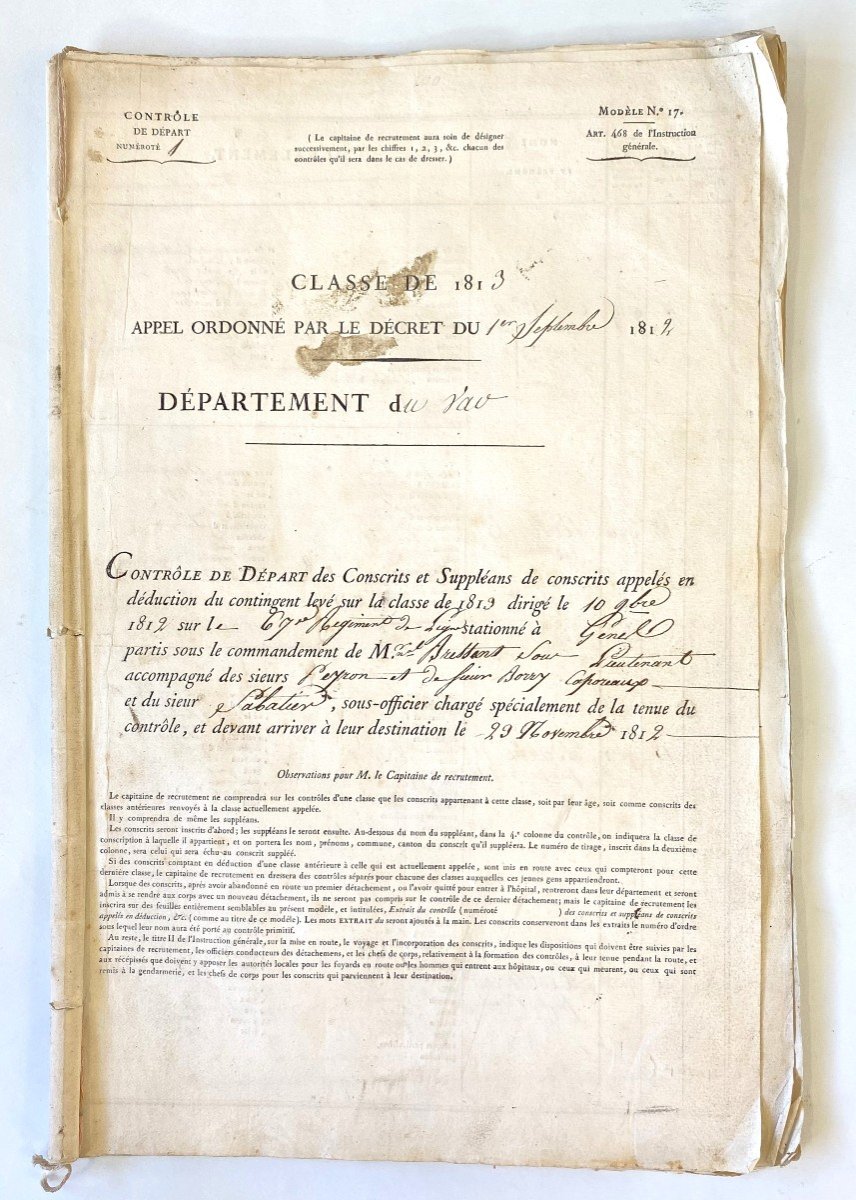 CONTRÔLE
DE DÉPART
NUMÉROTÉ 1
( Le capitaine de recrutement aura soin de désigner
successivement, par les chiffres 1, 2, 3, &c. chacun des
contrôles qu'il sera dans le cas de dresser. )
MODÈLE N.º 17.
ART. 468 de l'Instruction
générale.
CLASSE DE 1813
APPEL ORDONNÉ PAR LE DÉCRET DU 1er Septembre 1812
DÉPARTEMENT du Var
CONTRÔLE DE DÉPART des Conscrits et Suppléans de conscrits appelés en
déduction du contingent levé sur la classe de 1813 dirigé le 10 9bre
1812 sur le 67me Régiment de Ligne stationné à
partis sous le commandement de M. Bressant Sous Lieutenant
accompagné des sieurs Peyron et de sieur Borry Caporeaux
et du sieur Sabatier, sous-officier chargé spécialement de la tenue du
contrôle, et devant arriver à leur destination le 29 Novembre 1812
Observations pour M. le Capitaine de recrutement.
Le capitaine de recrutement ne comprendra sur les contrôles d'une classe que les conscrits appartenant à cette classe, soit par leur âge, soit comme conscrits des
classes antérieures renvoyés à la classe actuellement appelée.
Il y comprendra de même les suppléans.
Les conscrits seront inscrits d'abord; les suppléans le seront ensuite. Au-dessous du nom du suppléant, dans la 4.e colonne du contrôle, on indiquera la classe de
conscription à laquelle il appartient, et on portera les nom, prénoms, commune, canton du conscrit qu'il suppléera. Le numéro de tirage, inscrit dans la deuxième
colonne, sera celui qui sera échu au conscrit suppléé.
Si des conscrits comptant en déduction d'une classe antérieure à celle qui est actuellement appelée, sont mis en route avec ceux qui compteront pour cette
dernière classe, le capitaine de recrutement en dressera des contrôles séparés pour chacune des classes auxquelles ces jeunes gens appartiendront.
Lorsque des conscrits, après avoir abandonné en route un premier détachement, ou l'avoir quitté pour entrer à l'hôpital, rentreront dans leur département et seront
admis à se rendre aux corps avec un nouveau détachement, ils ne seront pas compris sur le contrôle de ce dernier détachement; mais le capitaine de recrutement les
inscrira sur des feuilles entièrement semblables au présent modèle, et intitulées, Extrait du contrôle ( numéroté ) des conscrits et suppléans de conscrits
appelés en déduction, &c. ( comme au titre de ce modèle ). Les mots EXTRAIT du seront ajoutés à la main. Les conscrits conserveront dans les extraits le numéro d'ordre
sous lequel leur nom aura été porté au contrôle primitif.
Au reste, le titre II de l'Instruction générale, sur la mise en route, le voyage et l'incorporation des conscrits, indique les dispositions qui doivent être suivies par les
capitaines de recrutement, les officiers conducteurs des détachemens, et les chefs de corps, relativement à la formation des contrôles, à leur tenue pendant la route, et
aux récépissés que doivent y apposer les autorités locales pour les fuyards en route ou les hommes qui entrent aux hôpitaux, ou ceux qui meurent, ou ceux qui sont
remis à la gendarmerie, et les chefs de corps pour les conscrits qui parviennent à leur destination.